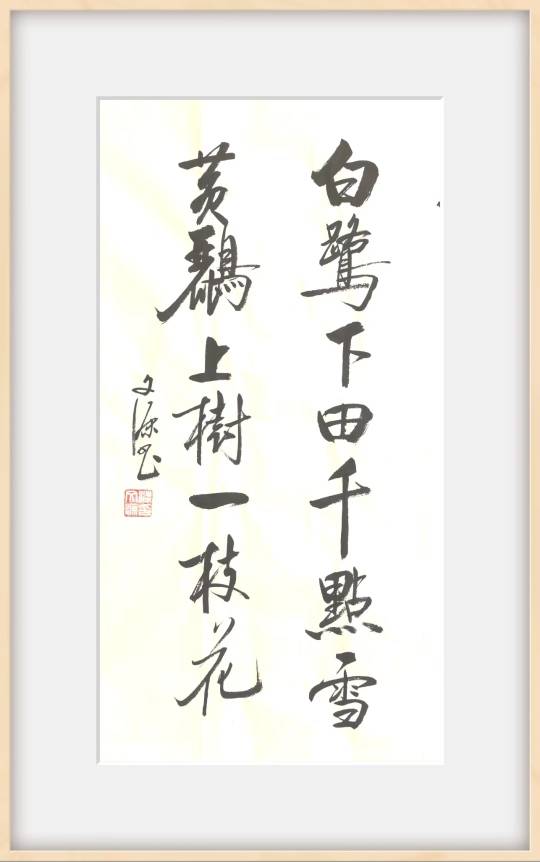 白鷺下田千點雪
黃鸝上樹一枝花
文源书